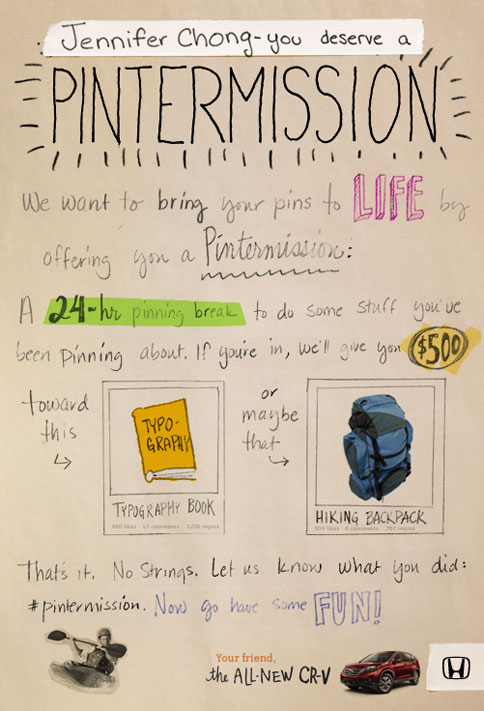 Jennifer Chong-you deserve a
PINTERMISSION
We want to bring your pins to LIFE by
offering you a Pintermission:
A 24-hr pinning break to do some stuff you've
been pinning about. If you're in, we'll give you $500
toward
this
TYPO-
GRAPHY
TYPOGRAPHY BOOK
490 likes 12 comments 1226 repins
or
maybe
that
HIKING BACKPACK
304 likes 8 comments 767 repins
That's it. No Strings. Let us know what you did:
#pintermission. Now go have some FUN!
Your friend,
the ALL-NEW CR-V